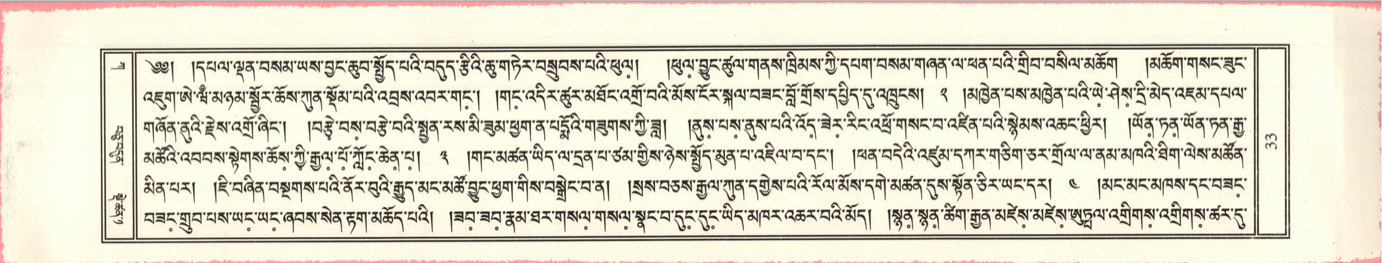 ༄༅། །དཔལ་ལྡན་བསམ་ཡས་བྱང་ཆུབ་སྤྱོད་པའི་བདུད་རྩིའི་ཆུ་གཏེར་བསྲུབས་པའི་ཕུལ༷། །ཕུལ༷་བྱུང་ཚུལ་གནས་ཁྲིམས་ཀྱི་དཔག་བསམ་གཞན་ལ་ཕན་པའི་གྲིབ་བསིལ་མཆོག །མཆོག་གསང་ཟུང་
འཇུག་ཨེ་ཝྃ་མཉམ་སྦྱོར་ཆོས་ཀུན་སྡོམ་པའི་འབྲས་འབར་གང༷་། །གང༷་འདིར་ཚུར་མཐོང་འགྲོ་བའི་མོས་ངོར་སྐལ་བཟང་བློ་གྲོས་དཔྱིད་དུ་འཁྲུངས། ༢ །མཁྱེན་པས་མཁྱེན་པའི་ཡེ་ཤེས་དྲི་མེད་འཇམ་དཔལ་
གཞོན་ནུའི་རྗེས་འགྲོ་ཞིང་། །བརྩེ་བས་བརྩེ་བའི་སྤྱན་རས་མི་ཟུམ་ཕྱག་ན་པདྨོའི་གཟུགས་ཀྱི་ཟླ། །ནུས་པས་ནུས་པའི་འོད་ཟེར་རིང་འཕྲོ་གསང་བ་འཛིན་པའི་སྙེམས་འཆང་ཕྱིར། །ཡོན་ཏན་ཡོན་ཏན་རྒྱ་
མཚོའི་འབབས་སྟེགས་ཆོས་ཀྱི་རྒྱལ་པོ་ཀློང་ཆེན་པ། ༣ །གང་མཚན་ཡིད་ལ་དྲན་པ་ཙམ་གྱིས་ཉེས་སྤྱོད་མུན་པ་འཇིལ་བ་དང་། །ཕན་བདེའི་འཛུམ་དཀར་གཅིག་ཅར་གྲོལ་ལ་ནམ་མཁའི་ཐིག་ལེས་མཚོན་
མིན་པར། །ཇི་བཞིན་བསྔགས་པའི་ནོར་བུའི་རྒྱུད་མང་མཚོ་བྱུང་ཕྱག་གིས་བསྒྲེང་བ་ན། །སྲས་བཅས་རྒྱལ་ཀུན་དགྱེས་པའི་རོལ་མོས་དགེ་མཚན་དུས་སྟོན་ཅིར་ཡང་དར། ༤ །མང་མང་མཁས་དང་བཟང༷་
བཟང༷་གྲུབ་པས་ཡང༷་ཡང༷་ཞབས་སེན་རྟག་མཆོད་པའི། །ཟབ༷་ཟབ༷་རྣམ་ཐར་གསལ༷་གསལ༷་སྣང་བ་དྭང༷་དྭང༷་ཡིད་མཁར་འཆར་བའི་མོད། །སྙན༷་སྙན༷་ཚིག་རྒྱན་མཛེས༷་མཛེས༷་ཨུཏྤལ་འགྲིགས༷་འགྲིགས༷་ཚར་དུ་
ཀ
33